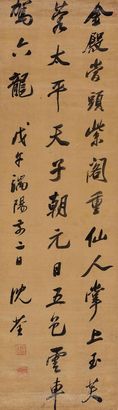 金殿當頭紫閣重仙人掌上玉芙
蓉太平天子朝元日五色雲車
駕六龍 戊午端陽前二日 沈荃